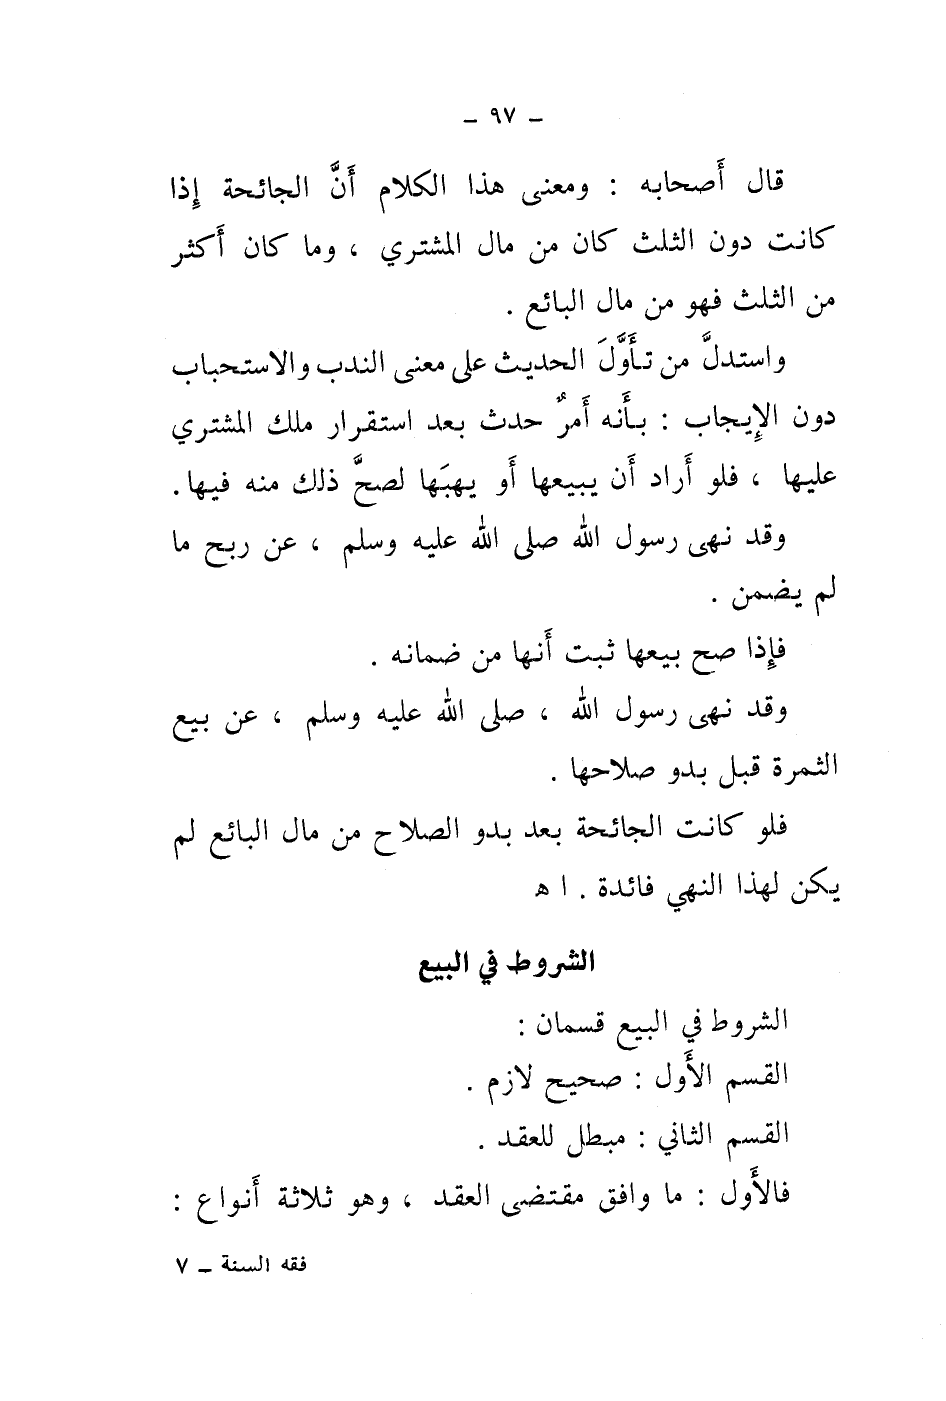 – ٩٧ –
قال أَصحابه : ومعنى هذا الكلام أَنَّ الجائحة إِذا
كانت دون الثلث كان من مال المشتري ، وما كان أَكثر
من الثلث فهو من مال البائع .
واستدلَّ من تأَوَّلَ الحديث على معنى الندب والاستحباب
دون الإِيجاب : بأَنه أَمرٌ حدث بعد استقرار ملك المشتري
عليها ، فلو أَراد أَن يبيعها أَو يهبَها لصحَّ ذلك منه فيها.
وقد نهى رسول الله صلى الله عليه وسلم ، عن ربح ما
لم يضمن .
فإِذا صح بيعها ثبت أَنها من ضمانه .
وقد نهى رسول الله ، صلى الله عليه وسلم ، عن بيع
الثمرة قبل بدو صلاحها .
فلو كانت الجائحة بعد بدو الصلاح من مال البائع لم
يكن لهذا النهي فائدة . ا ه
الشروط في البيع
الشروط في البيع قسمان :
القسم الأَول : صحيح لازم .
القسم الثاني : مبطل للعقد .
فالأَول : ما وافق مقتضى العقد ، وهو ثلاثة أَنواع :
فقه السنة – ٧